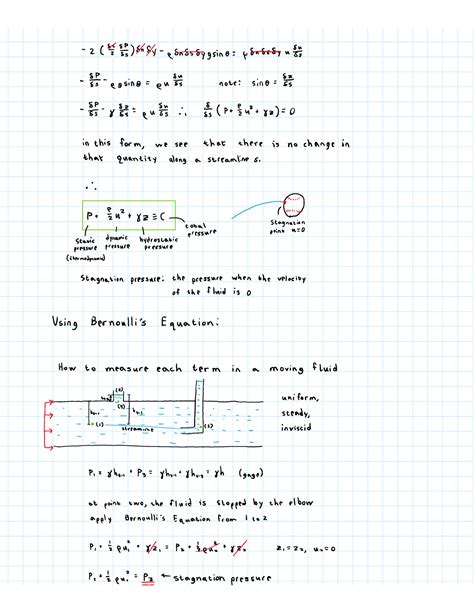 - 2 (δs/2 δP/δs) δn δy - ρ δn δs δy g sinθ = ρ δn δs δy u δu/δs
- δP/δs - ρ g sinθ = ρ u δu/δs note: sinθ = δz/δs
- δP/δs - γ δz/δs = ρ u δu/δs ∴ δ/δs (P + ρ/2 u² + γz) = 0
in this form, we see that there is no change in
that quantity along a streamline s.
∴
P + ρ/2 u² + γz = C
total
pressure
static
pressure
(thermodynamic)
dynamic
pressure
hydrostatic
pressure
Stagnation
point u=0
Stagnation pressure: the pressure when the velocity
of the fluid is 0
Using Bernoulli's Equation:
How to measure each term in a moving fluid
(4)
(3)
(1)
(2)
streamline
uniform,
steady,
inviscid
at point two, the fluid is stopped by the elbow
apply Bernoulli's Equation from 1 to 2
P₁ + ½ ρu₁² + γz₁ = P₂ + ½ ρu₂² + γz₂ z₁ = z₂, u₂ = 0
P₁ + ½ ρu₁² = P₂ ← stagnation pressure